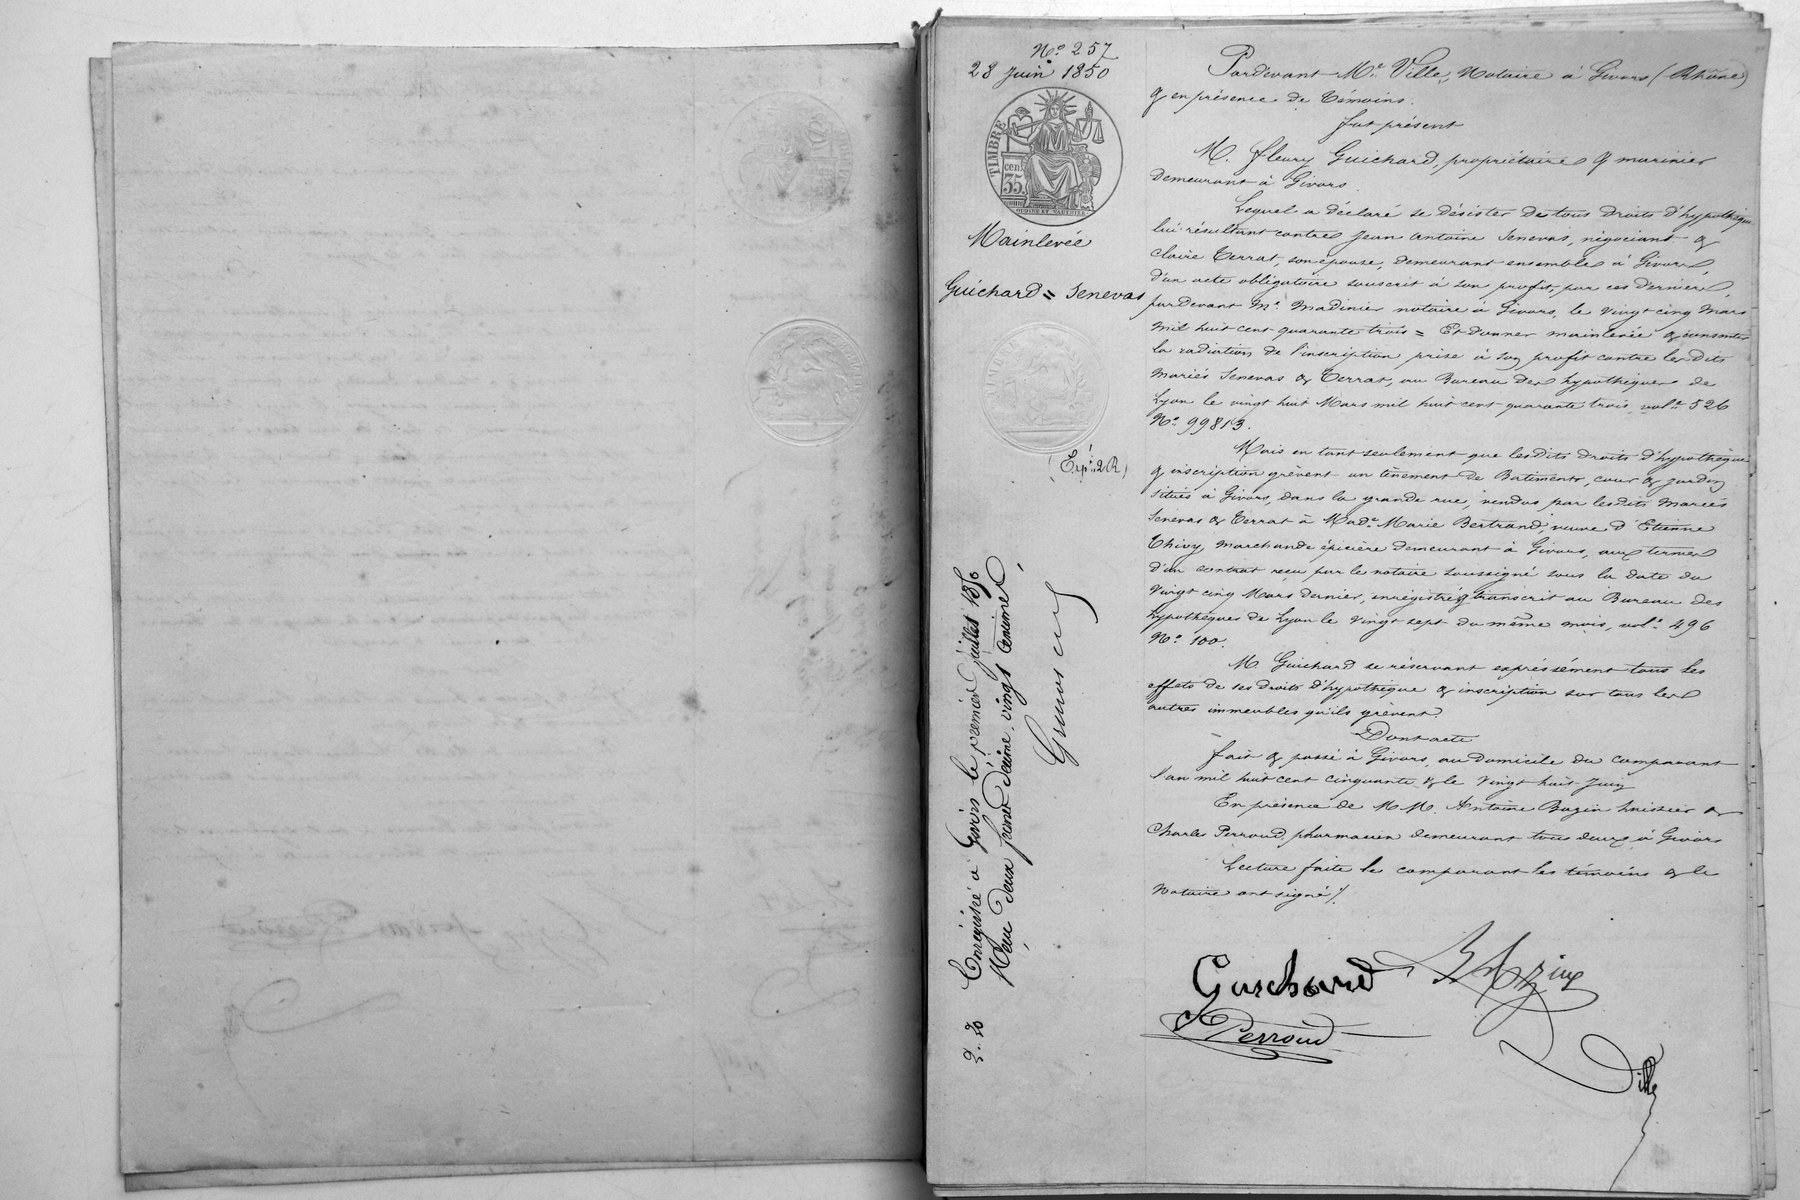 N.º 257
28 Juin 1850
TIMBRE
cen.
35.
OUDINÉ ET SAULNIER
Mainlevée
Guichard = Senevas
(Exp.on 2 R)
Enregistré à Givors le premier juillet 1850
Reçu deux francs décime vingt centimes
2. 20
Pardevant Me. Ville, Notaire à Givors (Rhône)
& en présence de témoins.
fut présent
M. fleury Guichard, propriétaire & marinier
demeurant à Givors.
Lequel a déclaré se désister de tous droits d'hypothèque
lui résultant contre Jean Antoine Senevas, négociant &
Claire Terrat, son épouse, demeurant ensemble à Givors,
d'un acte obligatoire souscrit à son profit, par ces derniers,
pardevant Me. Madinier notaire à Givors, le vingt cinq Mars
mil huit cent quarante trois = Et donner mainlevée & consentir
la radiation de l'inscription prise à son profit contre lesdits
mariés Senevas & Terrat, au Bureau des hypothèques de
Lyon le vingt huit Mars mil huit cent quarante trois, vol.e 526
N.º 99813.
Mais en tant seulement que lesdits droits d'hypothèque
& inscription grèvent un tènement de Batiments, cour & jardin
situés à Givors, dans la grande rue, vendus par lesdits Mariés
Senevas & Terrat à Mad.e Marie Bertrand, veuve d'Etienne
Thivy, marchande épicière demeurant à Givors, aux termes
d'un contrat reçu par le notaire soussigné sous la date du
vingt cinq Mars dernier, enregistré & transcrit au Bureau des
hypothèques de Lyon le vingt sept du même mois, vol.e 496
N.º 100.
M. Guichard se réservant expréssément tous les
effets de ses droits d'hypothèque & inscription sur tous les
autres immeubles qu'ils grèvent.
Dont acte
fait & passé à Givors, au domicile du comparant
l'an mil huit cent cinquante & le vingt huit Juin
En présence de M M. Antoine Bazin huissier &
Charles Perroud pharmacien demeurant tous deux à Givors
Lecture faite le comparant les témoins & le
Notaire ont signé ./.
Guichard
Bazin
Perroud
Ville